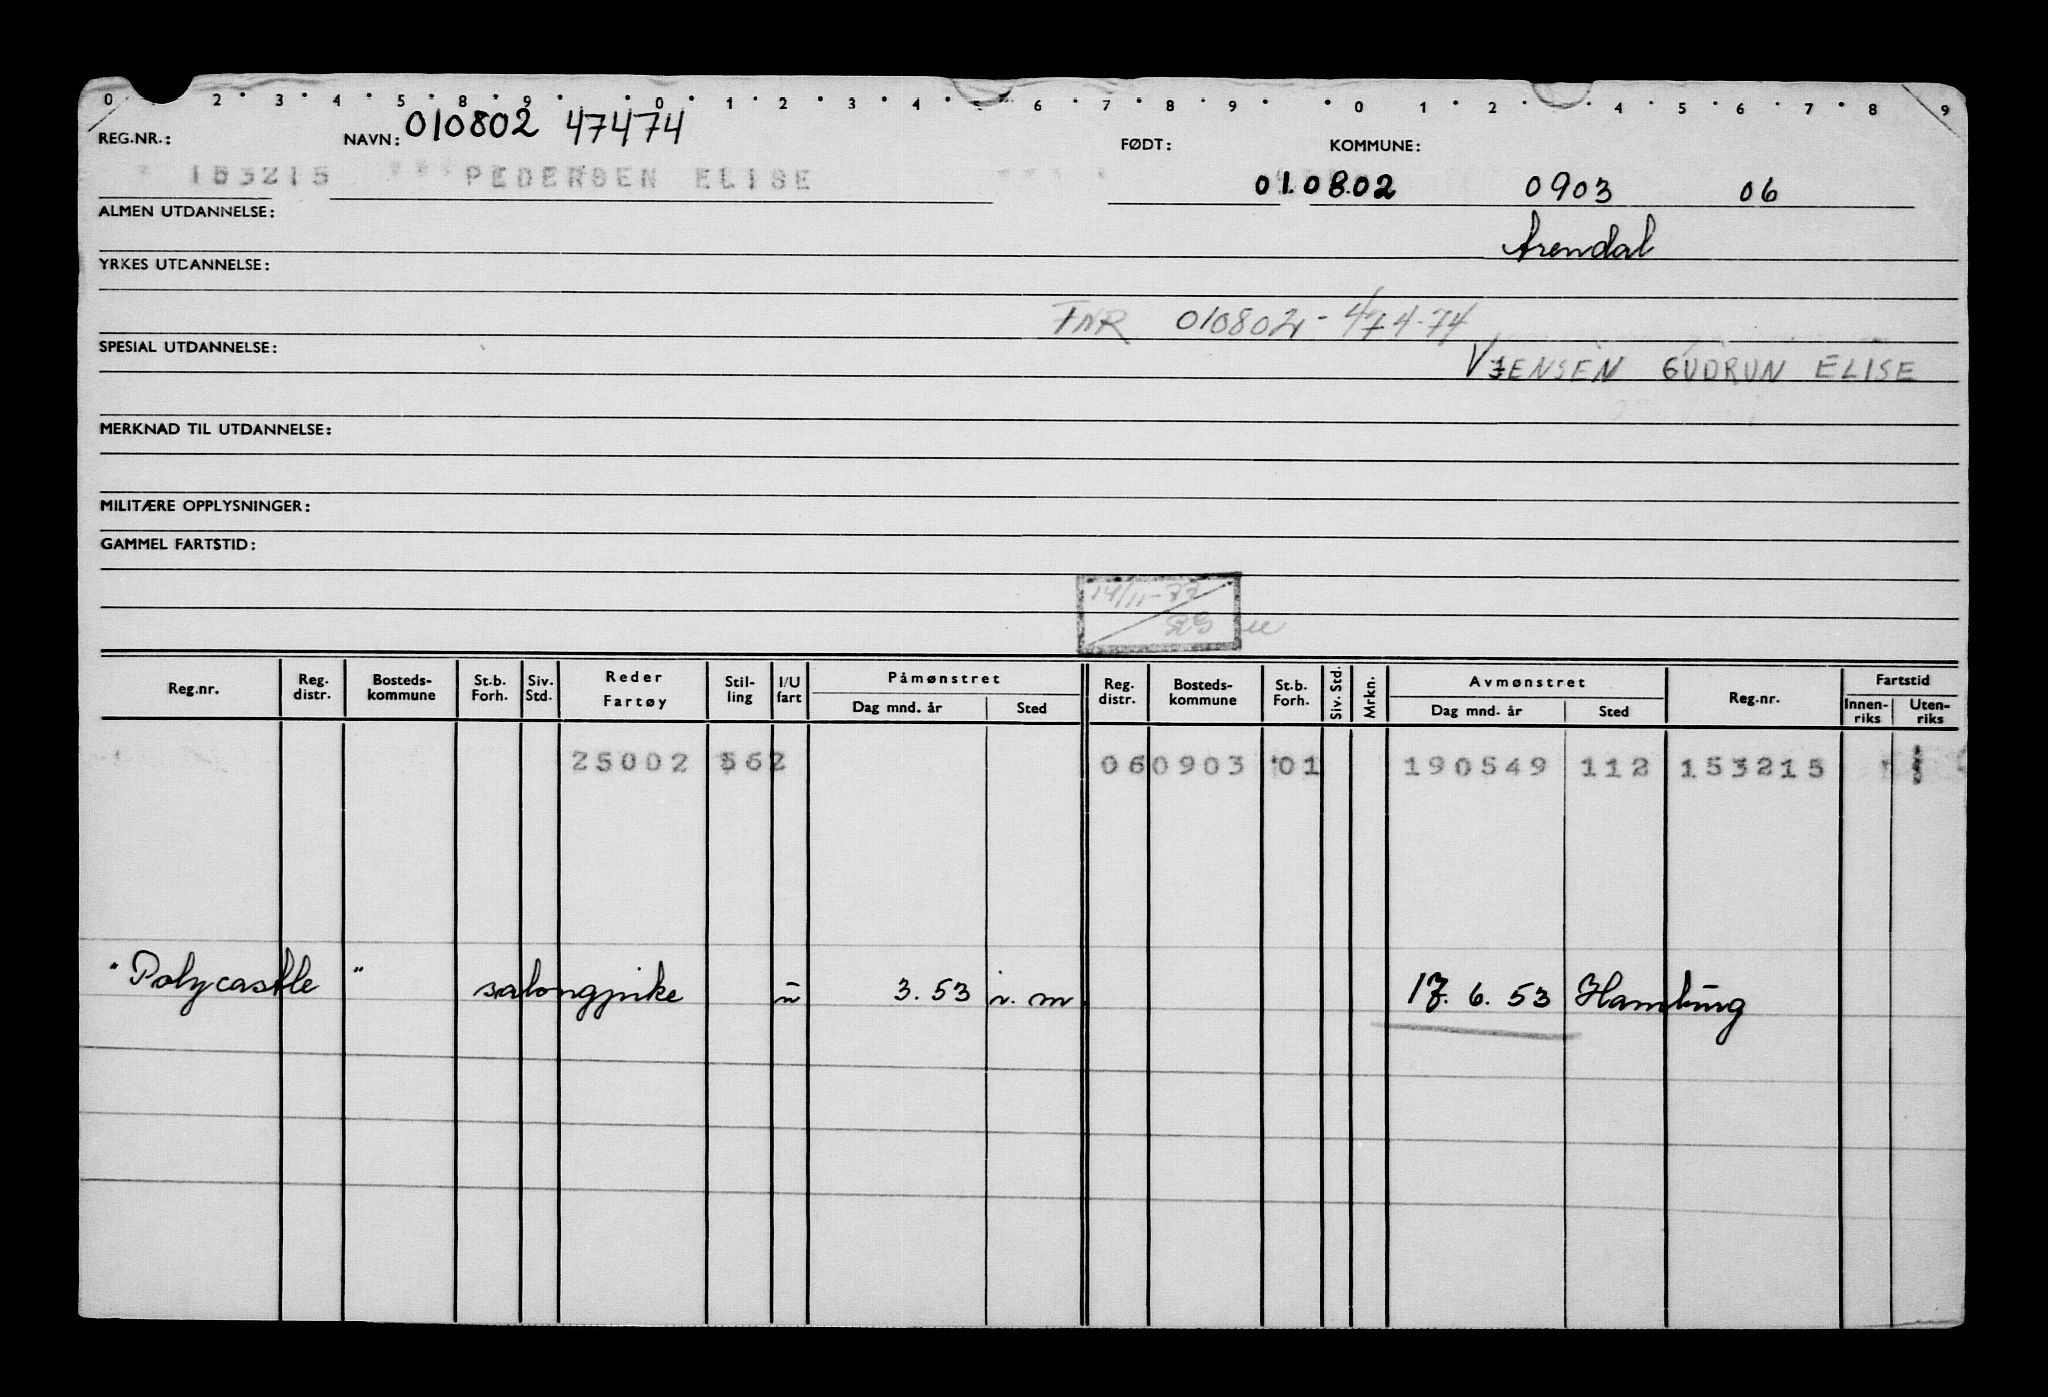 0 2 3 4 5 8 9 0 1 2 3 4 6 7 8 9 0 1 2 4 5 6 7 8 9
010802 47474
REG.NR.: NAVN: FØDT: KOMMUNE:
153215 PEDERSEN ELISE 01.08.02 0903 06
ALMEN UTDANNELSE: Arendal
YRKES UTDANNELSE:
FNR 010802-474-74
SPESIAL UTDANNELSE:
V JENSEN GUDRUN ELISE
MERKNAD TIL UTDANNELSE:
MILITÆRE OPPLYSNINGER:
GAMMEL FARTSTID:
14/11-77
Reg.nr. Reg. distr. Bosteds-kommune St.b. Forh. Siv. Std. Reder Fartøy Stil-ling I/U fart Påmønstret Dag mnd. år Sted Reg. distr. Bosteds-kommune St.b. Forh. Siv. Std. Mrkn. Avmønstret Dag mnd. år Sted Reg.nr. Fartstid Innen-riks Uten-riks
25002 562 060903 01 190549 112 153215
"Polycastle" salongpike u 3.53 i.m. 17.6.53 Hamburg